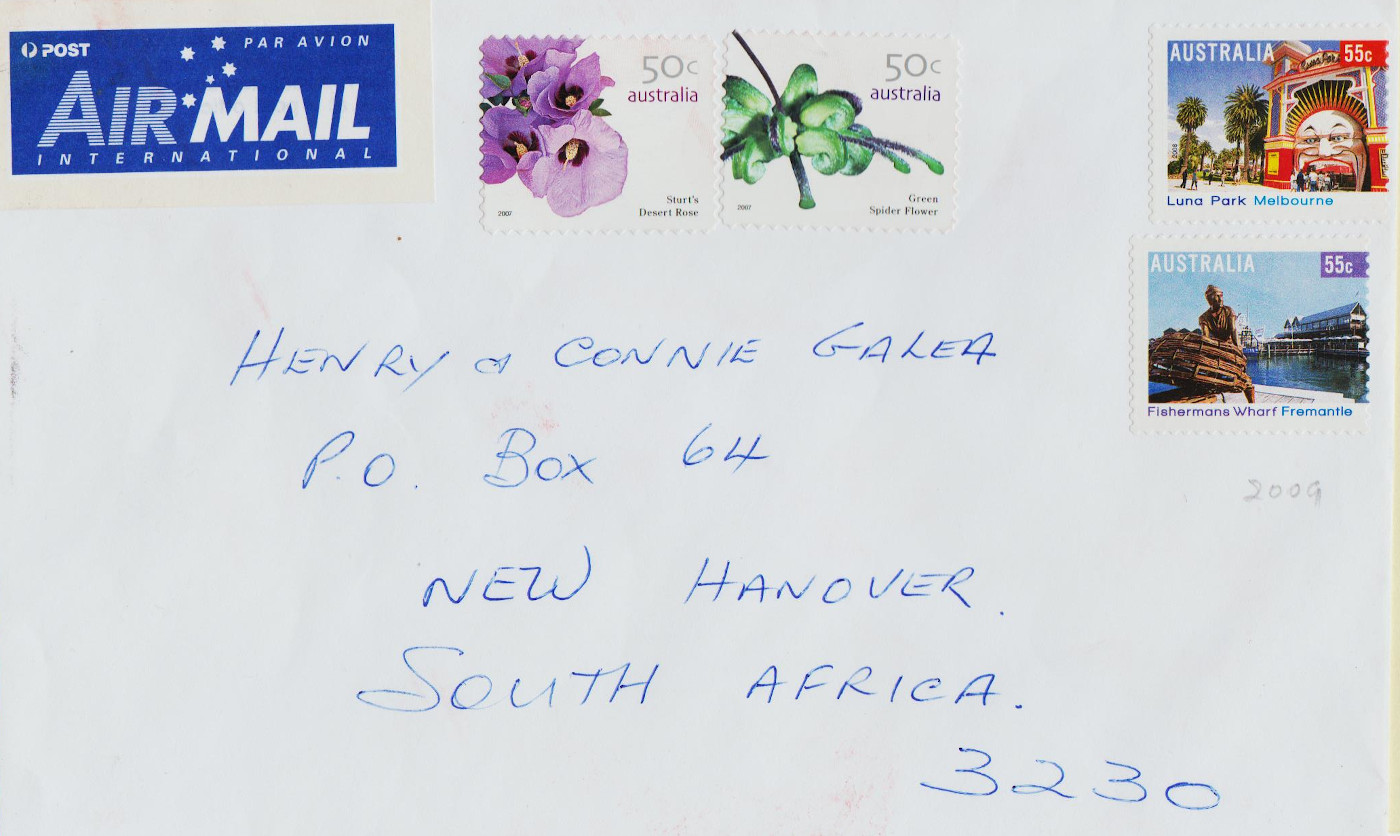 POST PAR AVION
AIR MAIL
INTERNATIONAL
50c
australia
Sturt's
Desert Rose
2007
50c
australia
Green
Spider Flower
2007
AUSTRALIA 55c
LUNA PARK
2008
Luna Park Melbourne
AUSTRALIA 55c
Fishermans Wharf Fremantle
HENRY & CONNIE GALEA
P.O. BOX 64
2009
NEW HANOVER.
SOUTH AFRICA.
3230